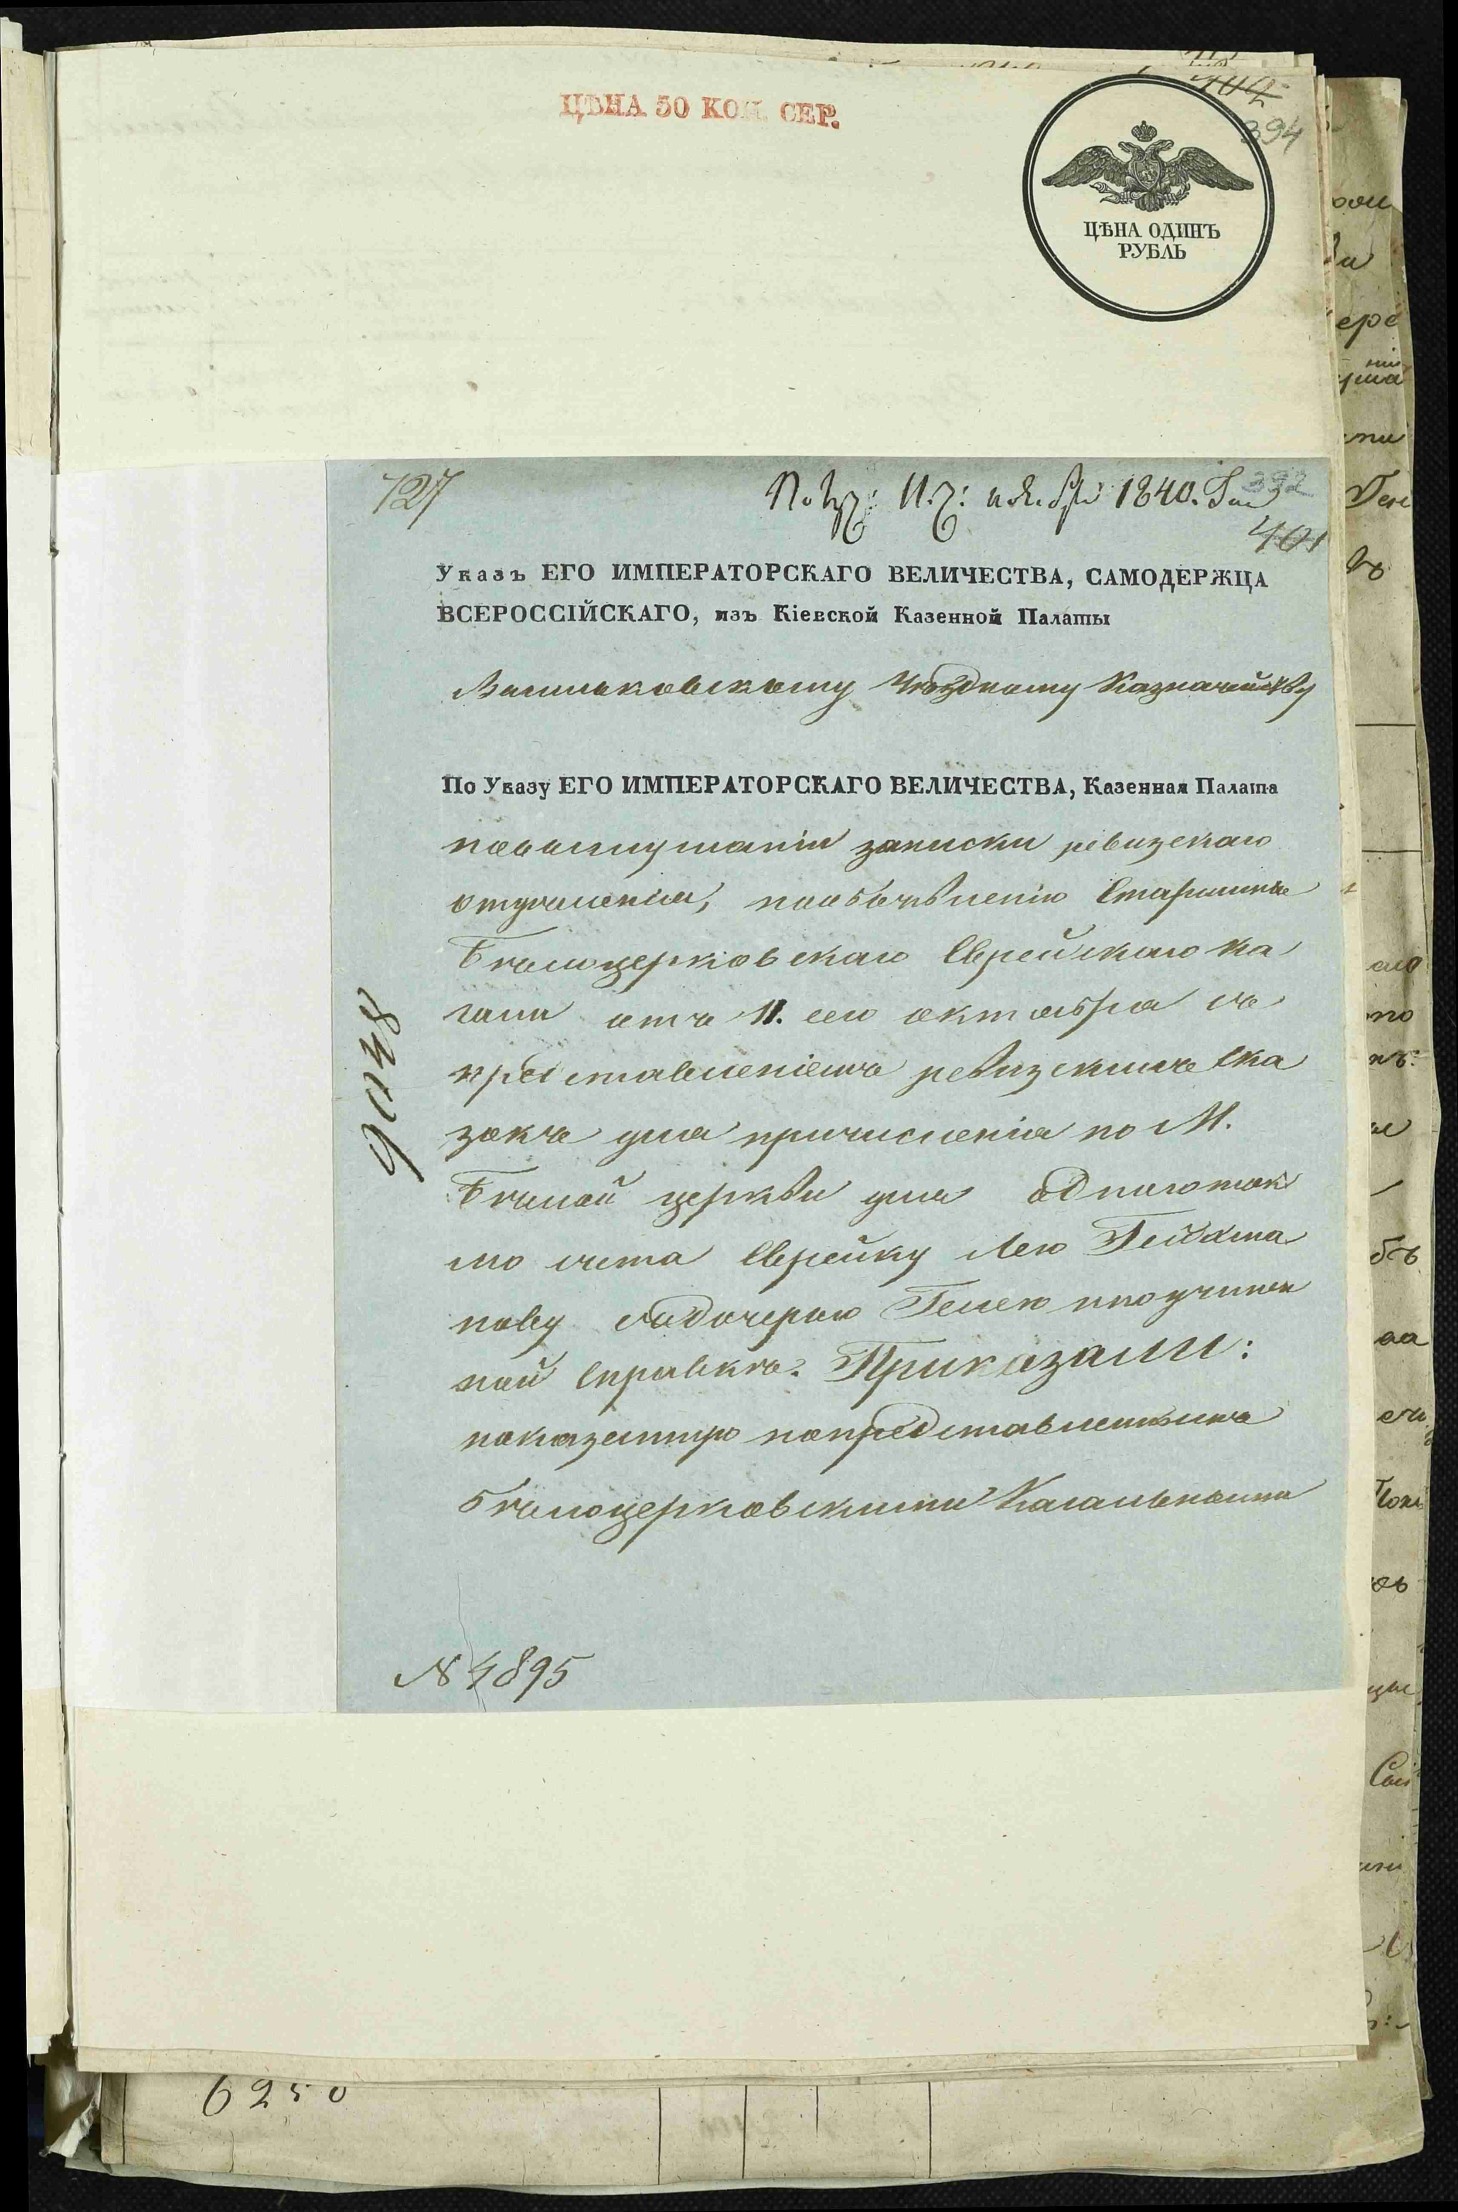 ЦѢНА 50 КОП. СЕР.
402
394
ЦѢНА ОДИНЪ
РУБЛЬ
727
Пол: 11. ноября 1840. Года
392
401
Указъ ЕГО ИМПЕРАТОРСКАГО ВЕЛИЧЕСТВА, САМОДЕРЖЦА
ВСЕРОССІЙСКАГО, изъ Кіевской Казенной Палаты
Васильковскому Уѣздному Казначейству
По Указу ЕГО ИМПЕРАТОРСКАГО ВЕЛИЧЕСТВА, Казенная Палата
повыслушаніи записки ревизскаго
отдѣленія, пообъявленію Старшины
Бѣлоцерковскаго Еврейскаго ка
гала отъ 11. сего октября съ
представленіемъ ревизскихъ ска
зокъ для причисленія по М.
Бѣлой церкви для однаготок
мо счета Еврейку Лею Гейхма
нову садочерью Генею ипоучинен
ной Справкѣ. Приказали:
показанную попредставленнымъ
бѣлоцерковскими Кагальными
9048
№ 4895
6250